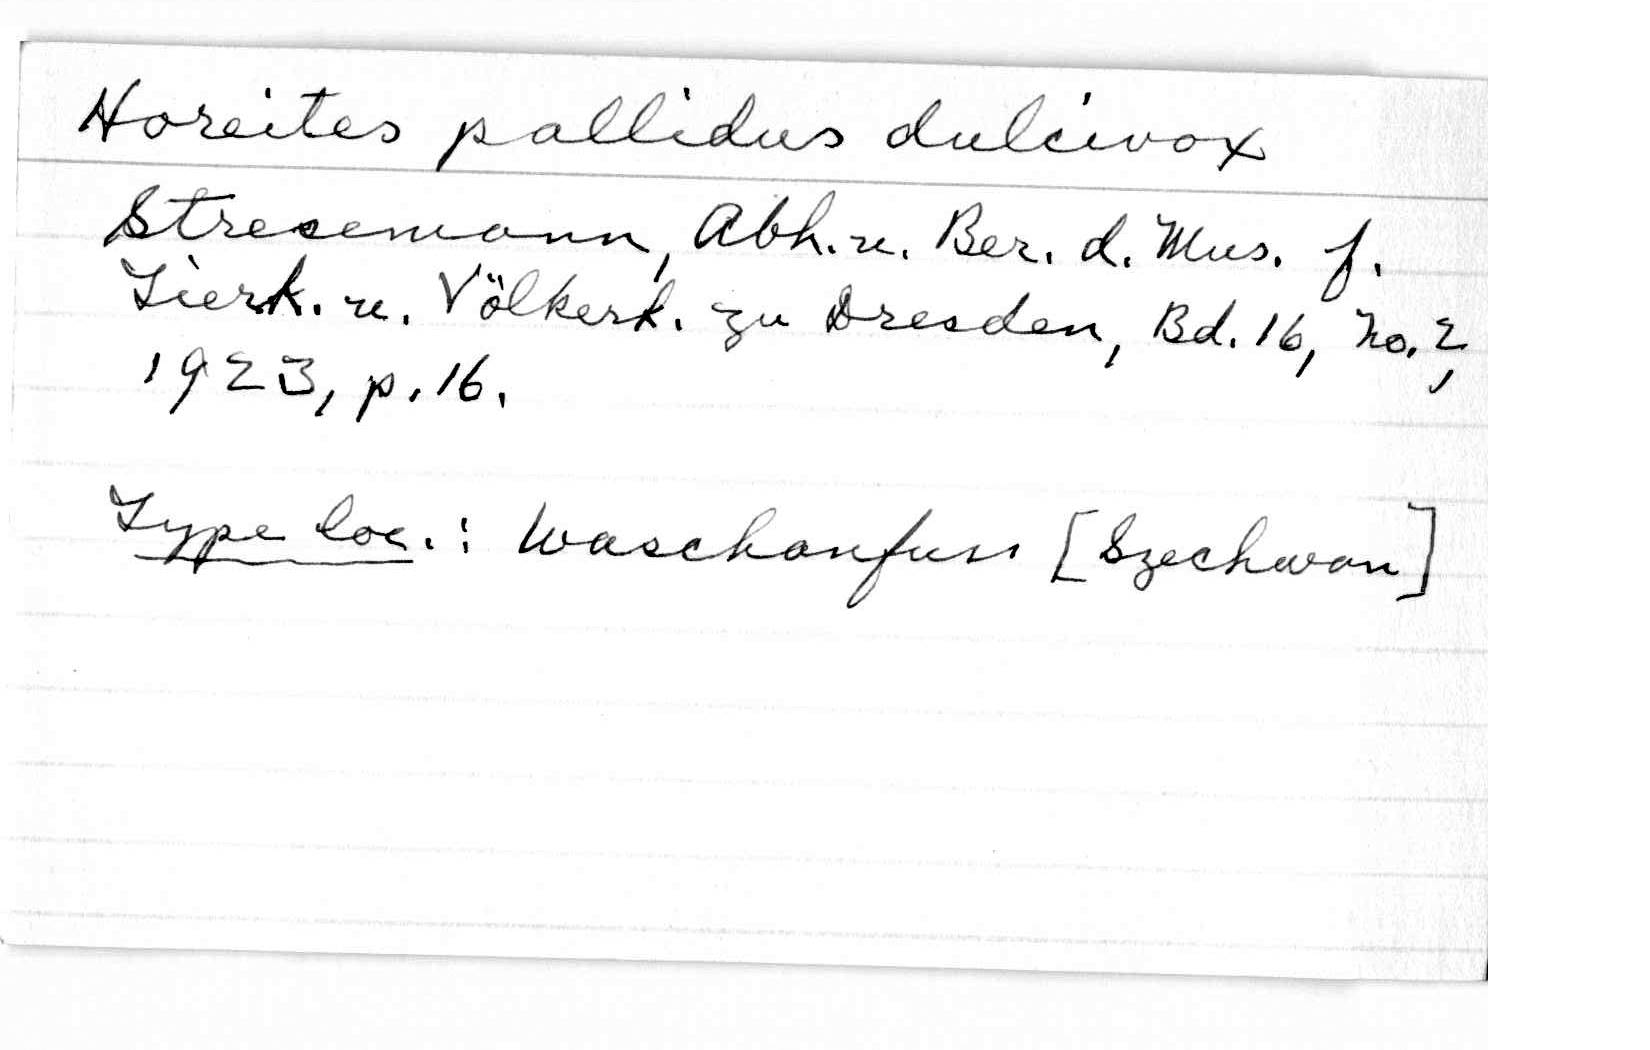 Horeites pallidus dulcivox
Stresemann, Abh. u. Ber. d. Mus. f.
Tierk. u. Völkerk. zu Dresden, Bd. 16, no. 2,
1923, p. 16.
Type loc.: Waschanfuss [Szechwan]